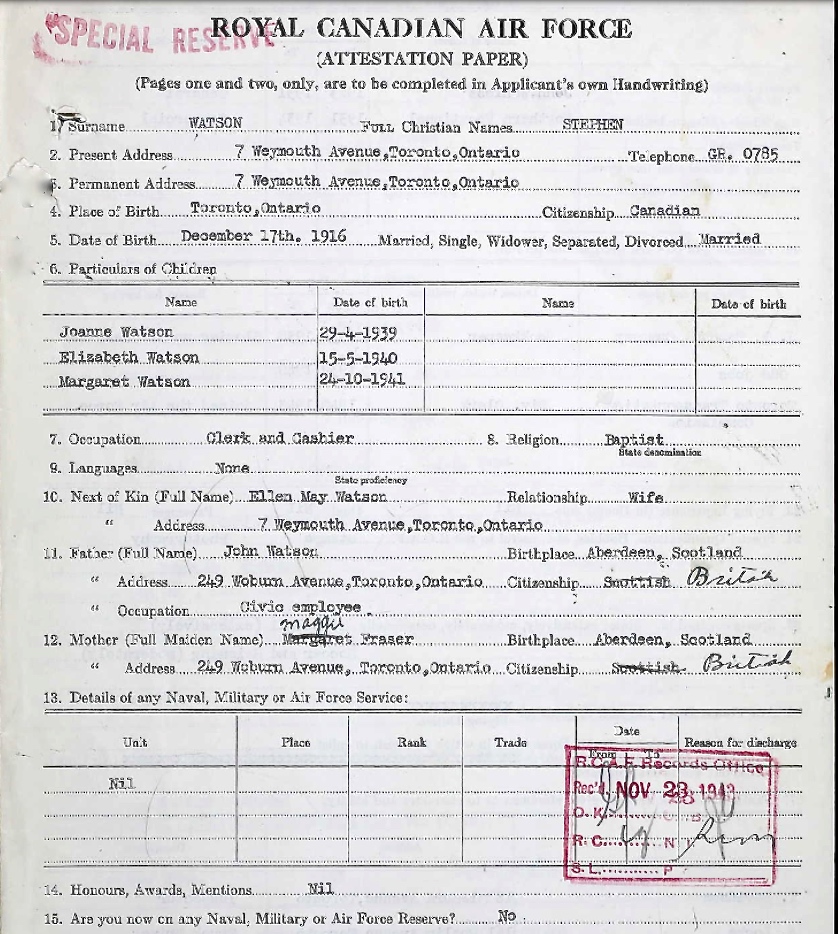 SPECIAL RESERVE
ROYAL CANADIAN AIR FORCE
(ATTESTATION PAPER)
(Pages one and two, only, are to be completed in Applicant's own Handwriting)
1. Surname WATSON Full Christian Names STEPHEN
2. Present Address 7 Weymouth Avenue,Toronto,Ontario Telephone GR. 0785
3. Permanent Address 7 Weymouth Avenue,Toronto,Ontario
4. Place of Birth Toronto,Ontario Citizenship Canadian
5. Date of Birth December 17th. 1916 Married, Single, Widower, Separated, Divorced Married
6. Particulars of Children
Name Date of birth Name Date of birth
Joanne Watson 29-4-1939
Elizabeth Watson 15-5-1940
Margaret Watson 24-10-1941
7. Occupation Clerk and Cashier 8. Religion Baptist
State denomination
9. Languages None
State proficiency
10. Next of Kin (Full Name) Ellen May Watson Relationship Wife
" Address 7 Weymouth Avenue,Toronto,Ontario
11. Father (Full Name) John Watson Birthplace Aberdeen, Scotland
" Address 249 Woburn Avenue,Toronto,Ontario Citizenship Scottish British
" Occupation Civic employee
Maggie
12. Mother (Full Maiden Name) Margaret Fraser Birthplace Aberdeen, Scotland
" Address 249 Woburn Avenue, Toronto,Ontario Citizenship Scottish British
13. Details of any Naval, Military or Air Force Service:
Unit Place Rank Trade Date Reason for discharge
From To
Nil
R.C.A.F. Records Office
Rec'd NOV 23 1943
O.K.
R.C. N
S.L. P
14. Honours, Awards, Mentions Nil
15. Are you now on any Naval, Military or Air Force Reserve? No